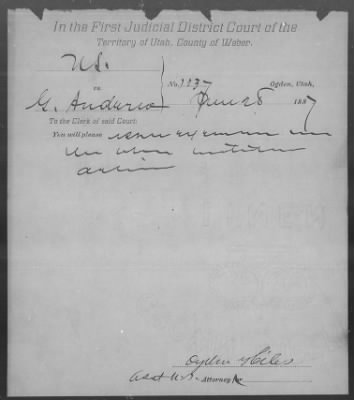 In the First Judicial District Court of the
Territory of Utah, County of Weber.
U.S.
vs. No. 1237 Ogden, Utah,
G. Anderson June 25 1887
To the Clerk of said Court:
You will please issue execution in
the above entitled
action
Ogden Hiles
Asst U.S. Attorney for